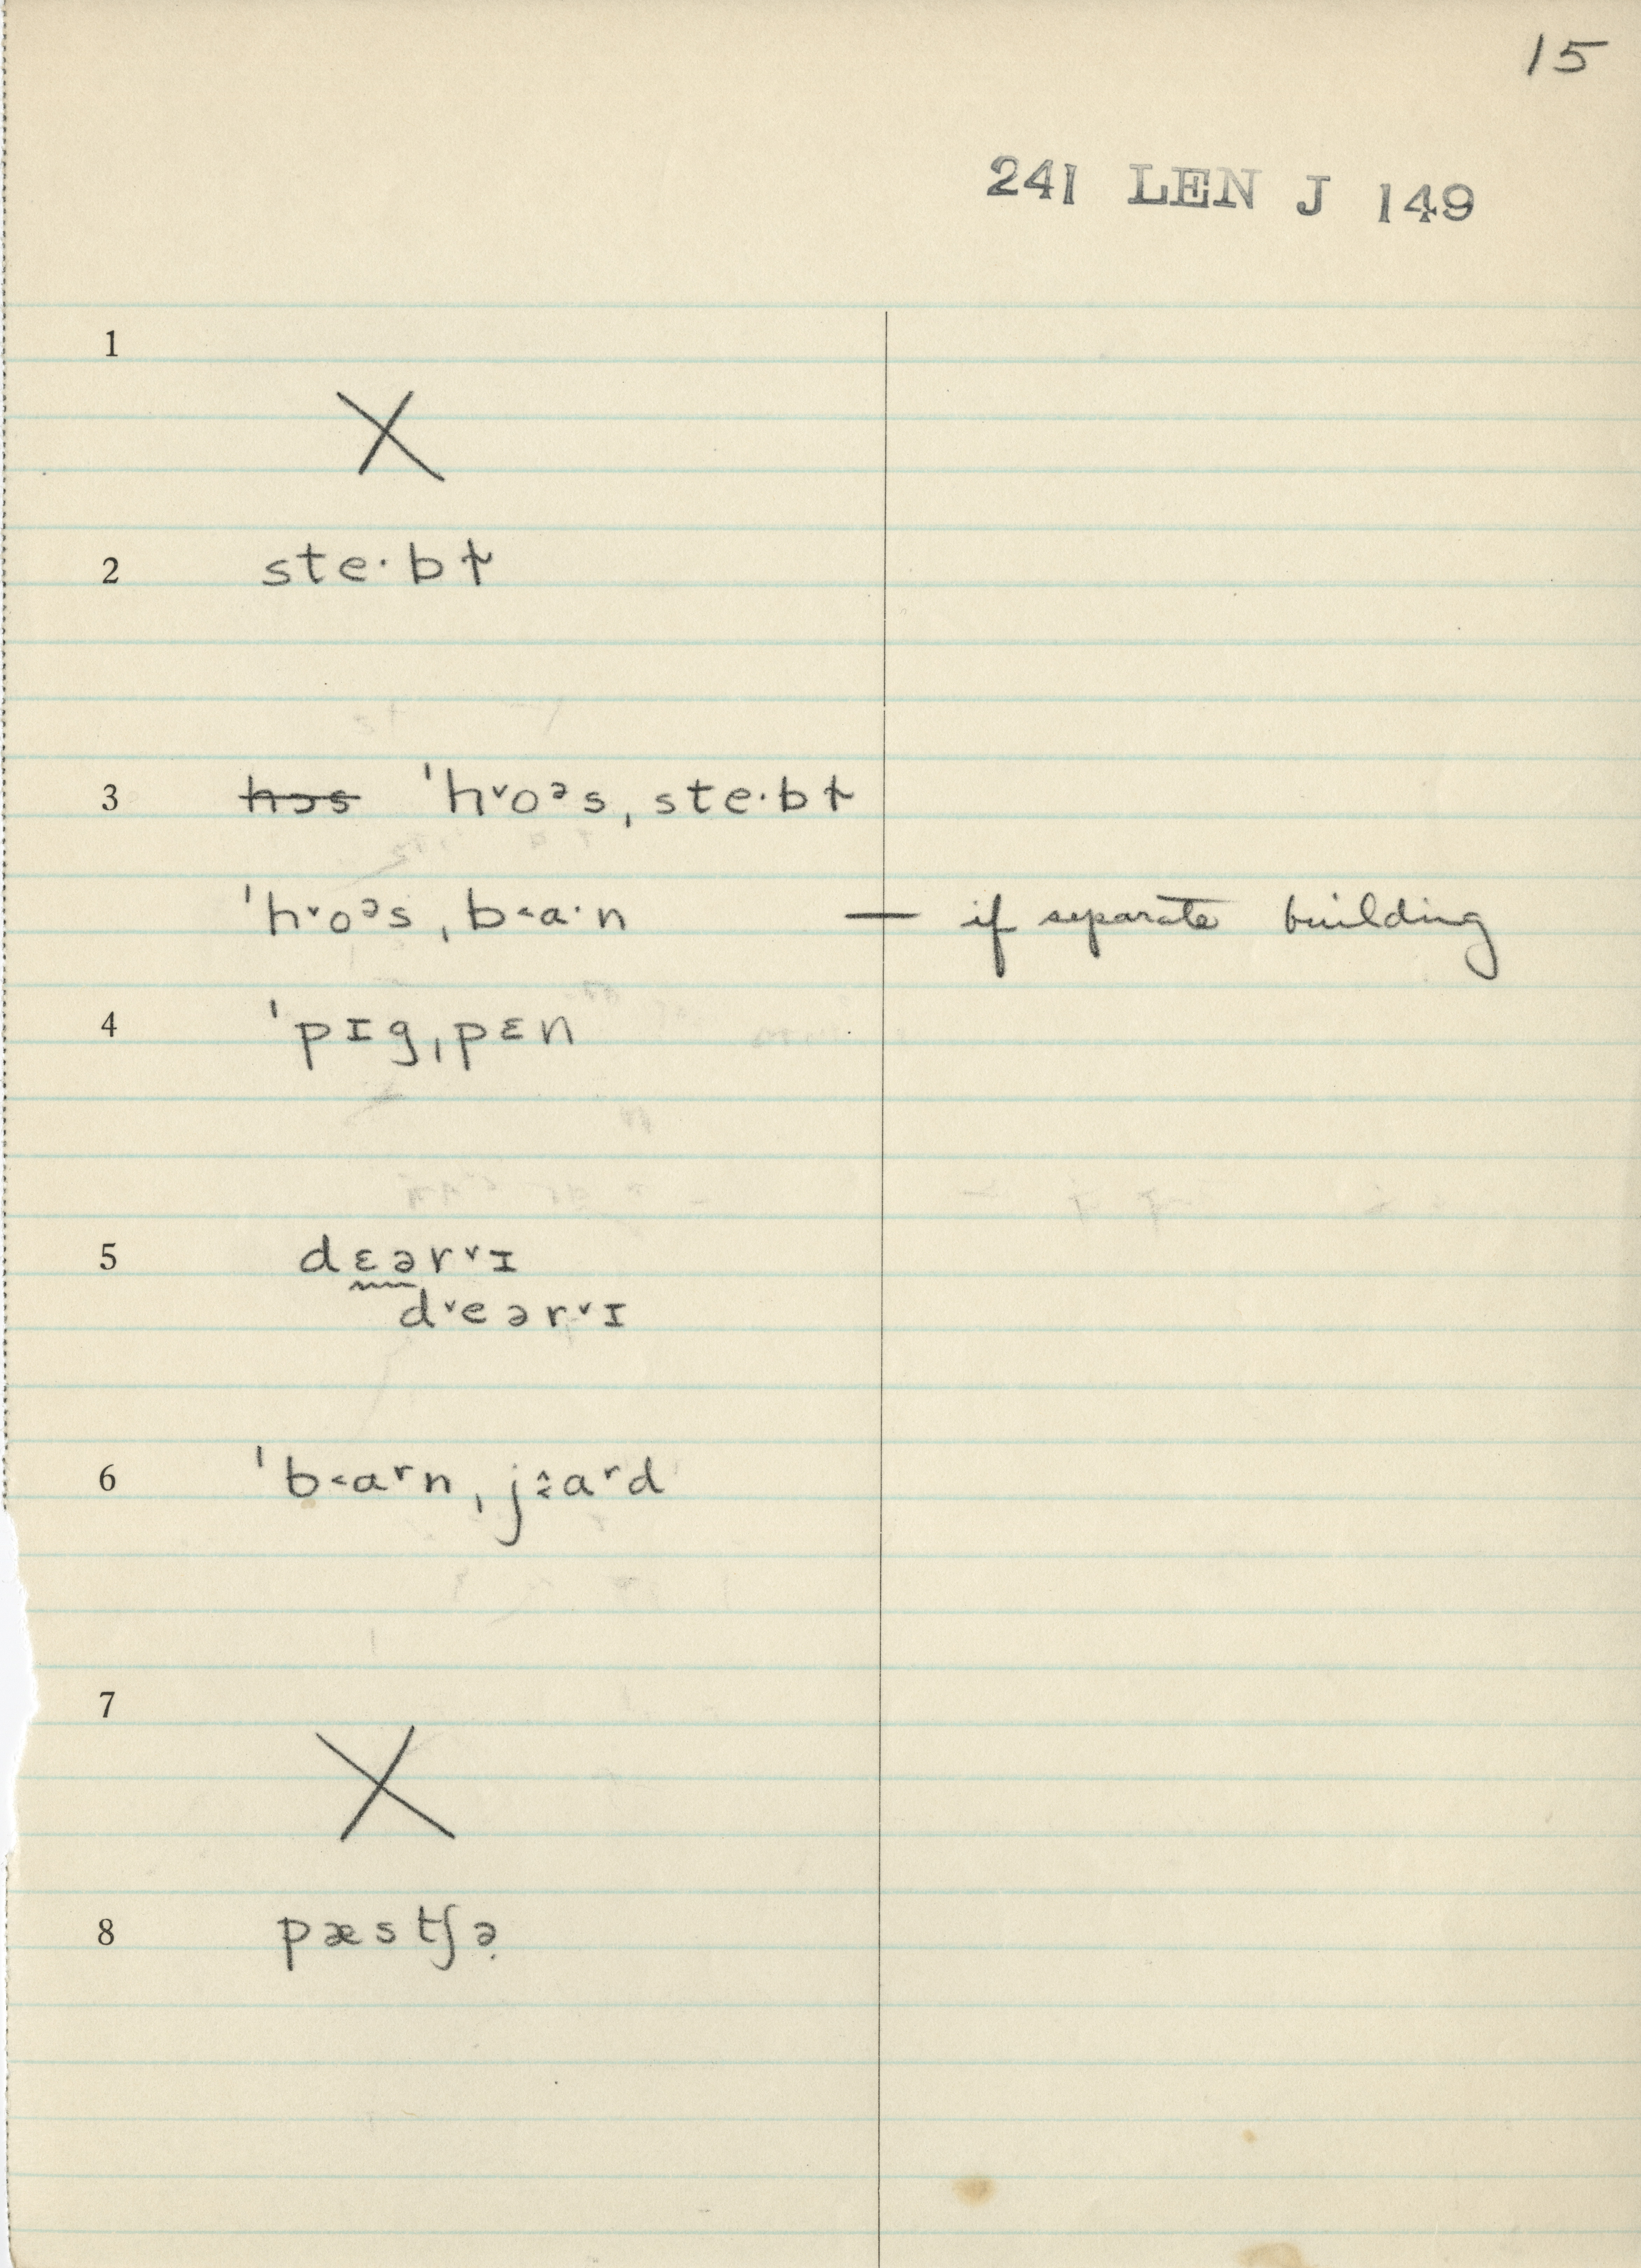 15
241 LEN J 149
1
X
2 ste·bɫ
3 ~~hɔs~~ ˈh˅oᵊsˌste·bɫ
ˈh˅oᵊsˌb˂a·n — if separate building
4 ˈpɪgˌpɛn
5 dɛər˅ɪ
d˅eər˅ɪ
6 ˈb˂aʳnˌj˄˂aʳd
7
X
8 pæstʃə̣